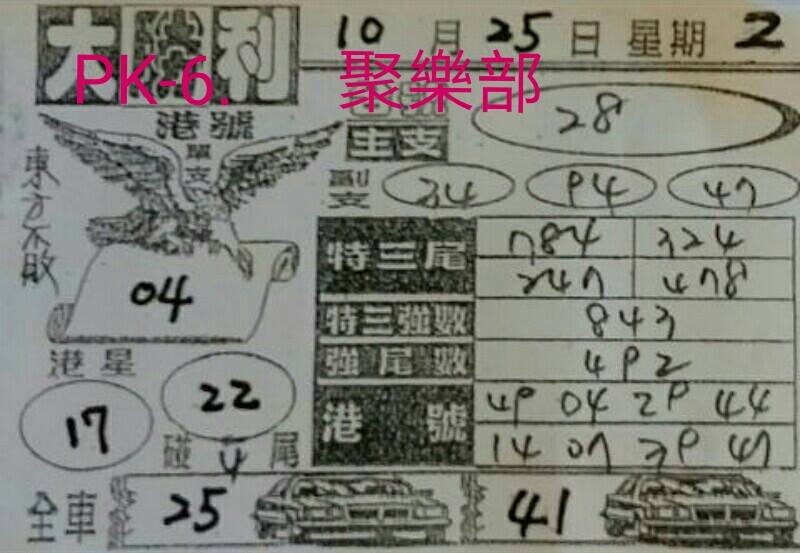 大勝利
10月25日 星期2
PK-6. 聚樂部
港號單支
主支
28
東方不敗
副支
34 94 47
04
特三尾
784 324
247 478
特三強數
843
強尾數
492
港星
17 22
碰4尾
港號
49 04 29 44
14 07 39 47
全車 25 41